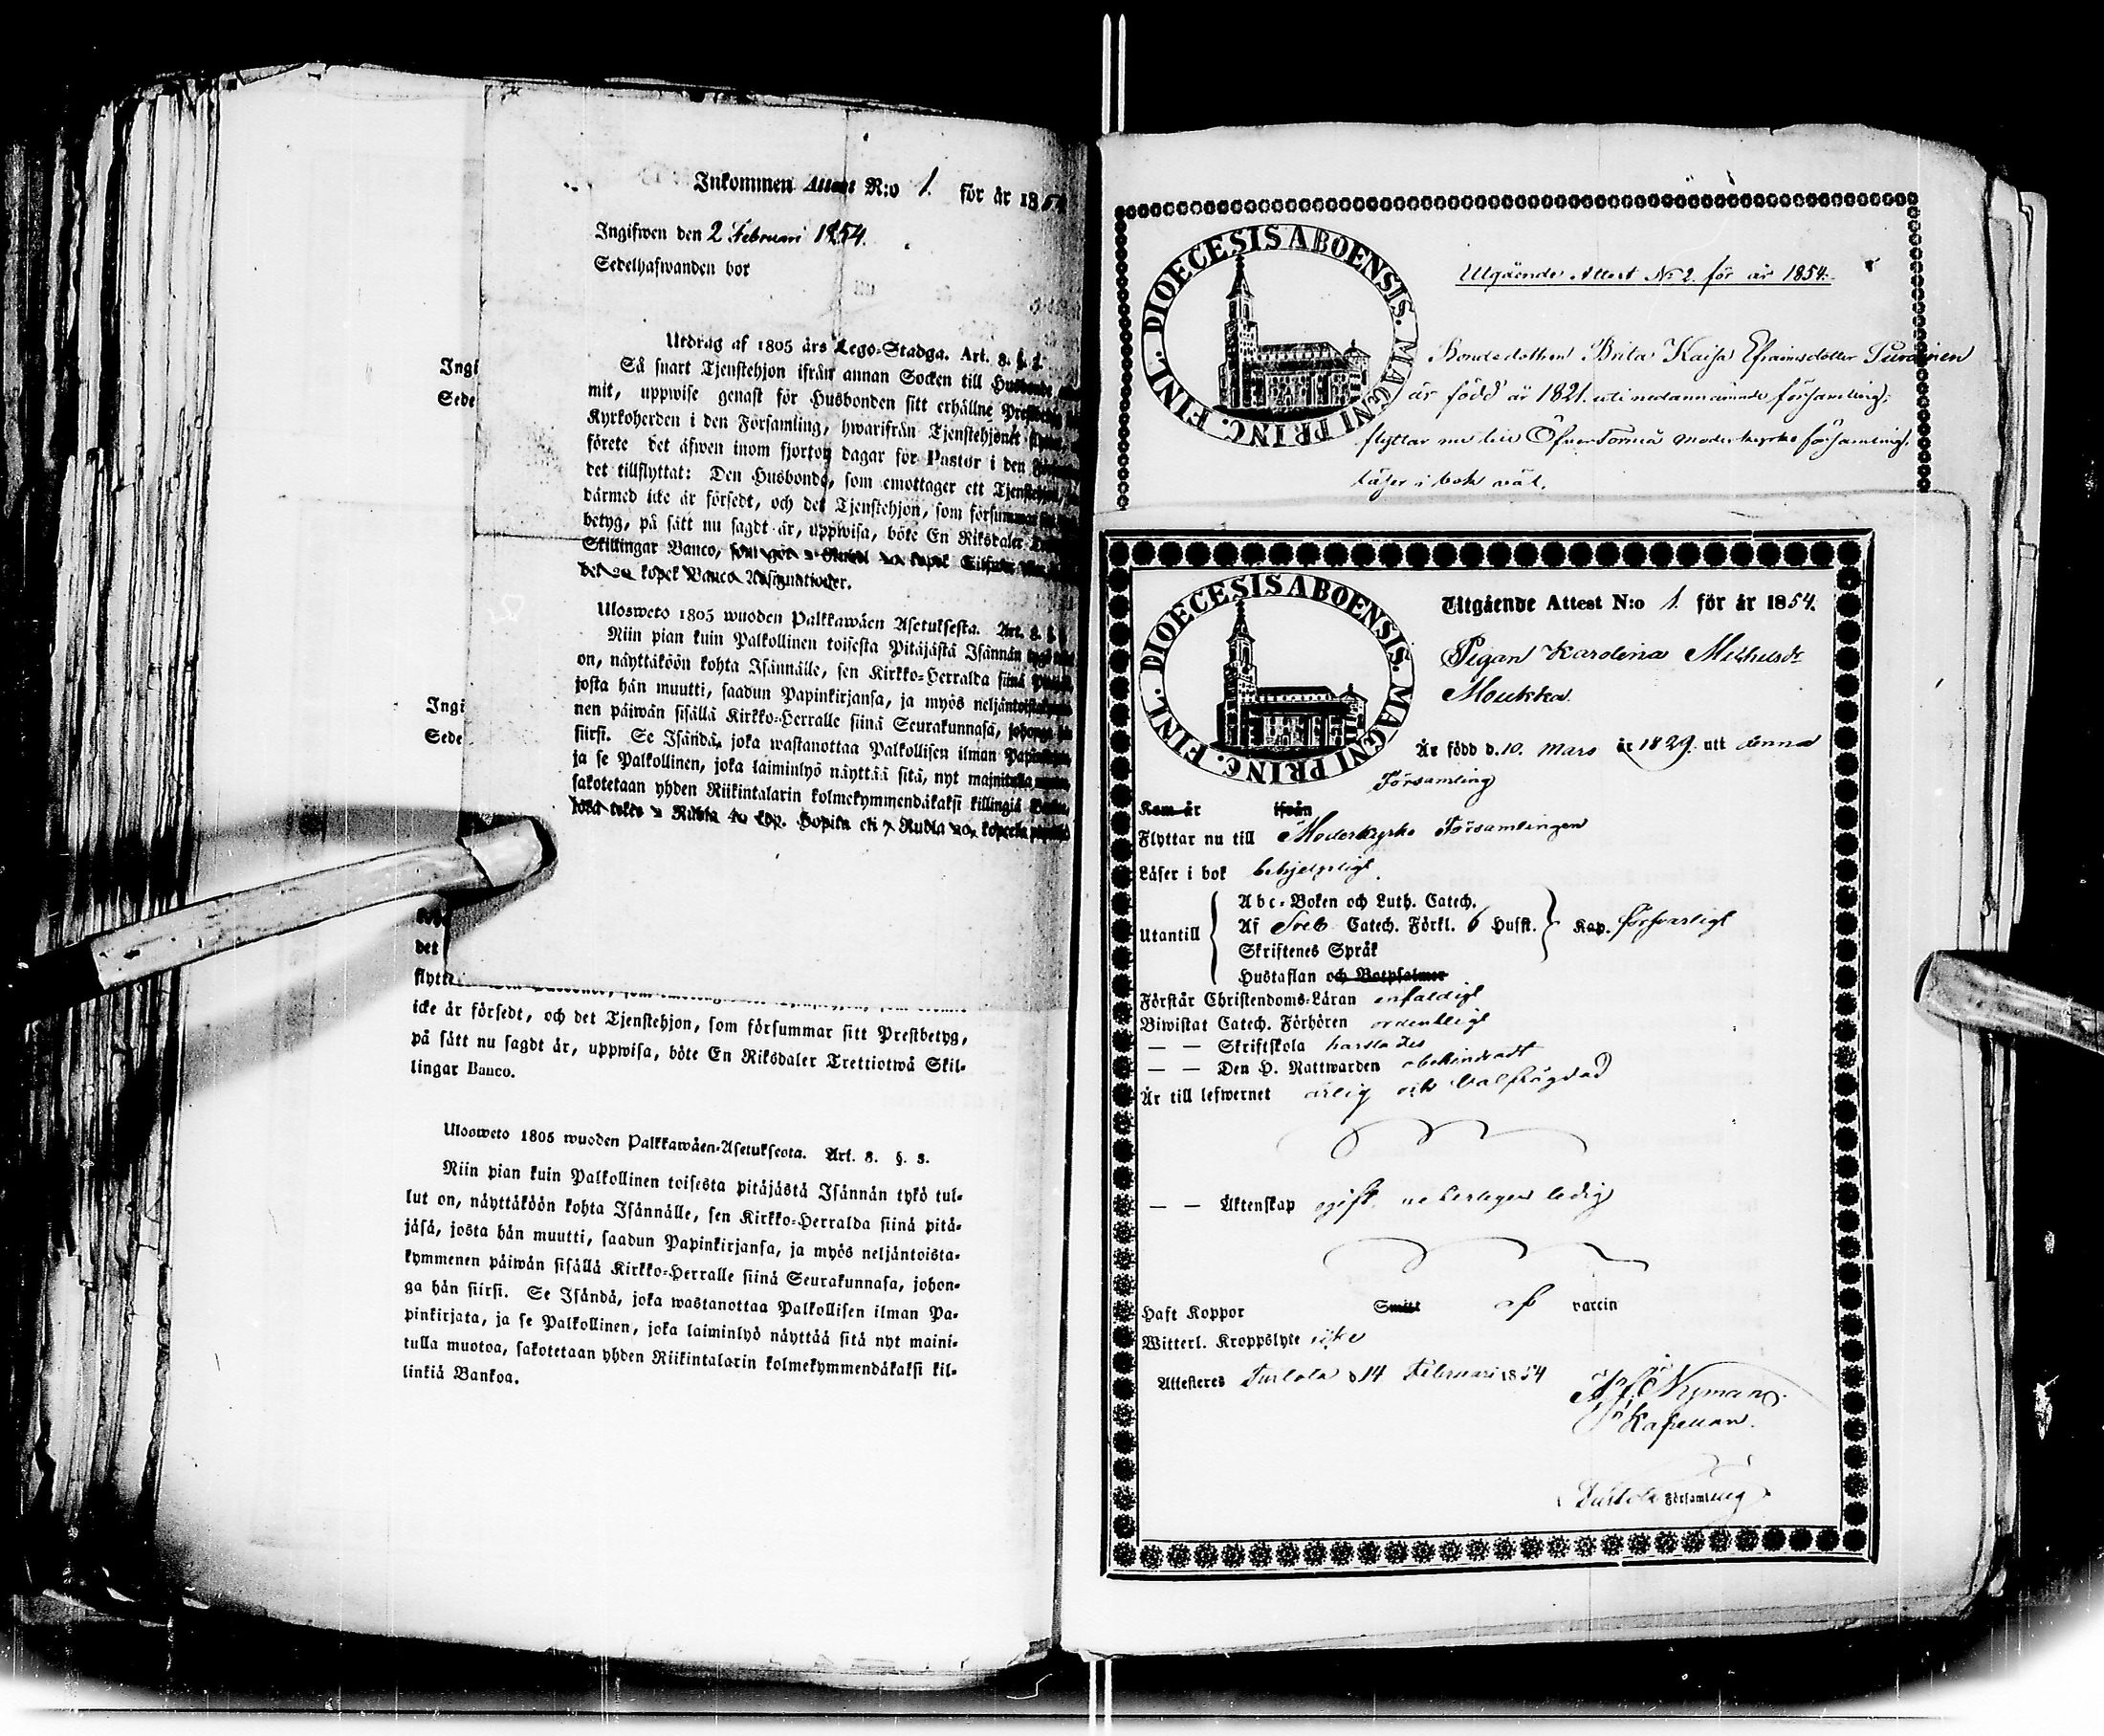 Inkommen Attest N:o 1. för år 1854
Ingifwen den 2 Februari 1854.
Sedelhafwanden bor
Utdrag af 1805 års Lego-Stadga. Art. 8. §. 3.
Så snart Tjenstehjon ifrån annan Socken till
mit, uppwise genast för Husbonden sitt erhållne
Kyrkoherden i den Församling, hwarifrån Tjenstehjonet
förete det äfwen inom fjorton dagar för Pastor i den
det tillflyttat: Den Husbonde, som emottager ett
därmed icke är försedt, och det Tjenstehjon, som försummar
betyg, på sätt nu sagdt är, uppwisa, böte En Riksdaler
Skillingar Banco,
kopek Banco Assignationer.
Ulosweto 1805 wuoden Palkkawäen Asetuksesta. Art. 8. §. 3.
Niin pian kuin Palkollinen toisesta Pitäjästä Isännän
on, näyttäköön kohta Isännälle, sen Kirkko-Herralda siinä
josta hän muutti, saadun Papinkirjansa, ja myös
nen päiwän sisällä Kirkko-Herralle siinä Seurakunnasa,
siirsi. Se Isändä, joka wastanottaa Palkollisen ilman
ja se Palkollinen, joka laiminlyö näyttää sitä, nyt mainitulla
sakotetaan yhden Riikintalarin kolmekymmendäkaksi killingiä
Ingi
Sede
Ingi
Sede
det
flytt
icke är försedt, och det Tjenstehjon, som försummar sitt Prestbetyg,
på sätt nu sagdt är, uppwisa, böte En Riksdaler Trettiotwå Skil-
lingar Banco.
Ulosweto 1805 wuoden Palkkawäen-Asetuksesta. Art. 8. §. 3.
Niin pian kuin Palkollinen toisesta pitäjästä Isännän tykö tul-
lut on, näyttäköön kohta Isännälle, sen Kirkko-Herralda siinä pitä-
jäsä, josta hän muutti, saadun Papinkirjansa, ja myös neljäntoista-
kymmenen päiwän sisällä Kirkko-Herralle siinä Seurakunnasa, johon-
ga hän siirsi. Se Isändä, joka wastanottaa Palkollisen ilman Pa-
pinkirjata, ja se Palkollinen, joka laiminlyö näyttää sitä nyt maini-
tulla muotoa, sakotetaan yhden Riikintalarin kolmekymmendäkaksi kil-
linkiä Bankoa.
DIOECESIS ABOENSIS. MAGNI PRINC. FINL.
Utgående Attest No 2. för år 1854.
Bondedottren Brita Kaisa Efraimsdotter
är född år 1821. uti nedannämnde församling;
flyttar nu till Öfver Torneå moderkyrko församling,
läser i bok väl.
DIOECESIS ABOENSIS. MAGNI PRINC. FINL.
Utgående Attest N:o 1. för år 1854.
Pigan Karolina Michelsdr
Moukka.
Är född d. 10. Mars år 1829. uti denna
Församling
Kom år ifrån
Flyttar nu till Moderkyrko Församlingen
Läser i bok behjelpligt.
Abc-Boken och Luth. Catech.
Utantill Af Sveb Catech. Förkl. 6 Husst. Kap. försvarligt
Skriftenes Språk
Hustaflan och Botpsalmer
Förstår Christendoms-Läran enfaldigt
Biwistat Catech. Förhören ordentligt
— — Skriftskola
— — Den H. Nattwarden obehindradt
Är till lefwernet ärlig och välfrägdad
— — Äktenskap ogift, ledig
Haft Koppor Smitt af vaccin
Witterl. Kroppslyte icke
Attesteres Turtola d 14 Februari 1854
Nyman
Kapellan.
Turtola Församling